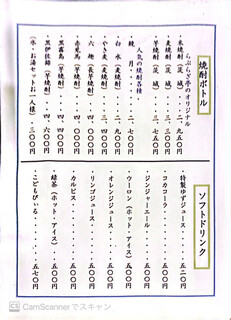 焼酎ボトル
らぶらぎ亭のオリジナル
米焼酎(茨城)・二、九五〇円
麦焼酎(茨城)・三、一五〇円
芋焼酎(茨城)・三、七五〇円
人気の焼酎各種・
鏡月・・・・二、七〇〇円
白水(麦焼酎)・二、九〇〇円
やき麦(麦焼酎)・三、四〇〇円
六趣(長芋焼酎)・四、〇〇〇円
赤兎馬(芋焼酎)・四、〇〇〇円
黒霧島(芋焼酎)・四、〇〇〇円
黒伊佐錦(芋焼酎)・四、六〇〇円
(氷・お湯セットお一人様)三〇〇円
ソフトドリンク
特製ゆずジュース・・五二〇円
コカコーラ・・・・・五〇〇円
ジンジャーエール・・・五〇〇円
ウーロン(ホット・アイス)・五〇〇円
オレンジジュース・・・五〇〇円
リンゴジュース・・・・五〇〇円
カルピス・・・・・・五〇〇円
緑茶(ホット・アイス)・五〇〇円
こどもびいる・・・・・五七〇円
CS CamScannerでスキャン